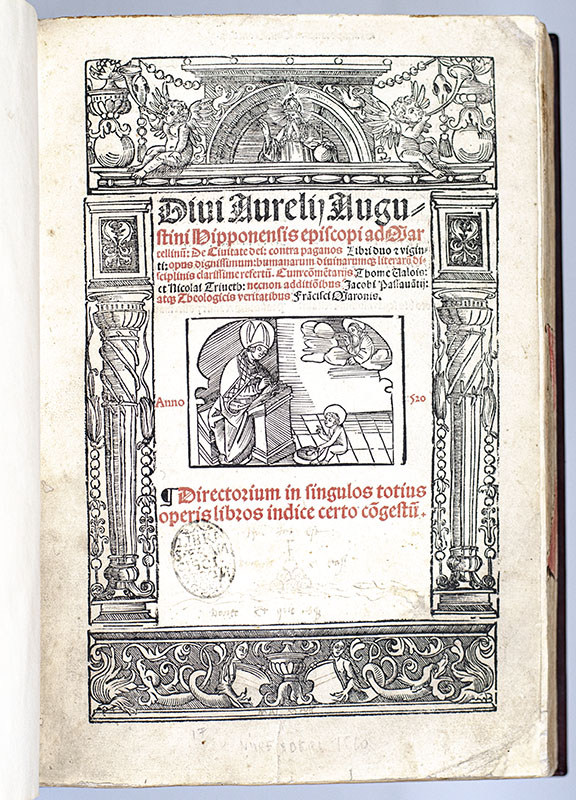 Diui Aurelij Augu⸗
stini Hipponensis episcopi ad Mar
cellinū: De Ciuitate dei: contra paganos Libri duo ⁊ vigin⸗
ti: opus dignissimum: humanarum diuinarumq; literarū di⸗
sciplinis clarissime refertū. Cum cōmētarijs Thome Valois:
et Nicolai Triueth: necnon additiōibus Jacobi Passauātij:
atq; Theologicis veritatibus Frācisci Maronis.
Anno 520
¶ Directorium in singulos totius
operis libros indice certo cōgestū.